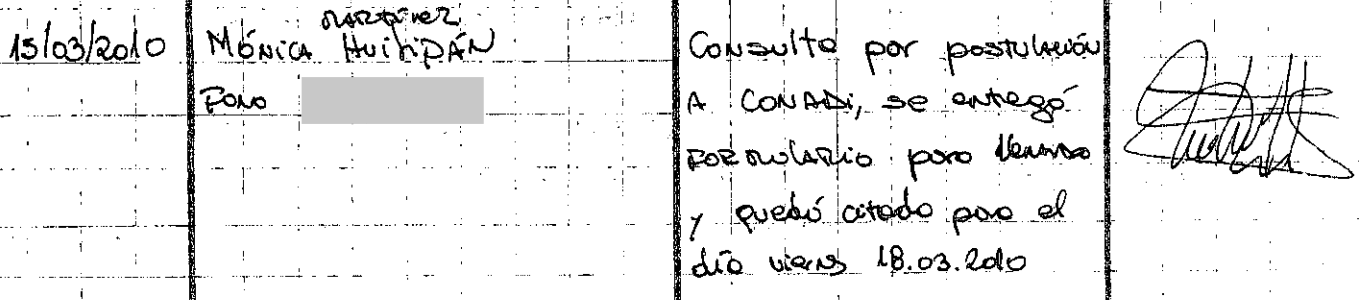 15/03/2010
Martínez
Mónica Huilipán
Fono
Consulta por postulación
A CONADI, se entregó
Formulario para llenarse
y quedó citado para el
día viernes 18.03.2010